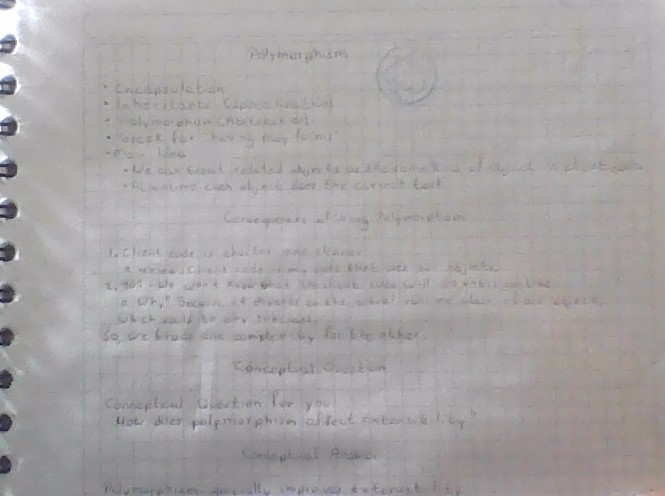 Polymorphism
• Encapsulation
• Inheritance (specialization)
• Polymorphism (Abstraction)
• Greek for "having many forms"
- Main Idea
• We can treat related objects as the same kind of object in client
• At runtime each object does the correct task
Consequences of Using Polymorphism
1. Client code is shorter and cleaner
a. review: Client code is any code that uses our objects
2. But - We won't know what the client code will do until runtime
a. Why? Because it depends on the actual runtime class of our object
which could be any subclass.
So, we trade one complexity for the other
Conceptual Question
Conceptual Question for you:
How does polymorphism affect extensibility?
Conceptual Answer
Polymorphism generally improves extensibility